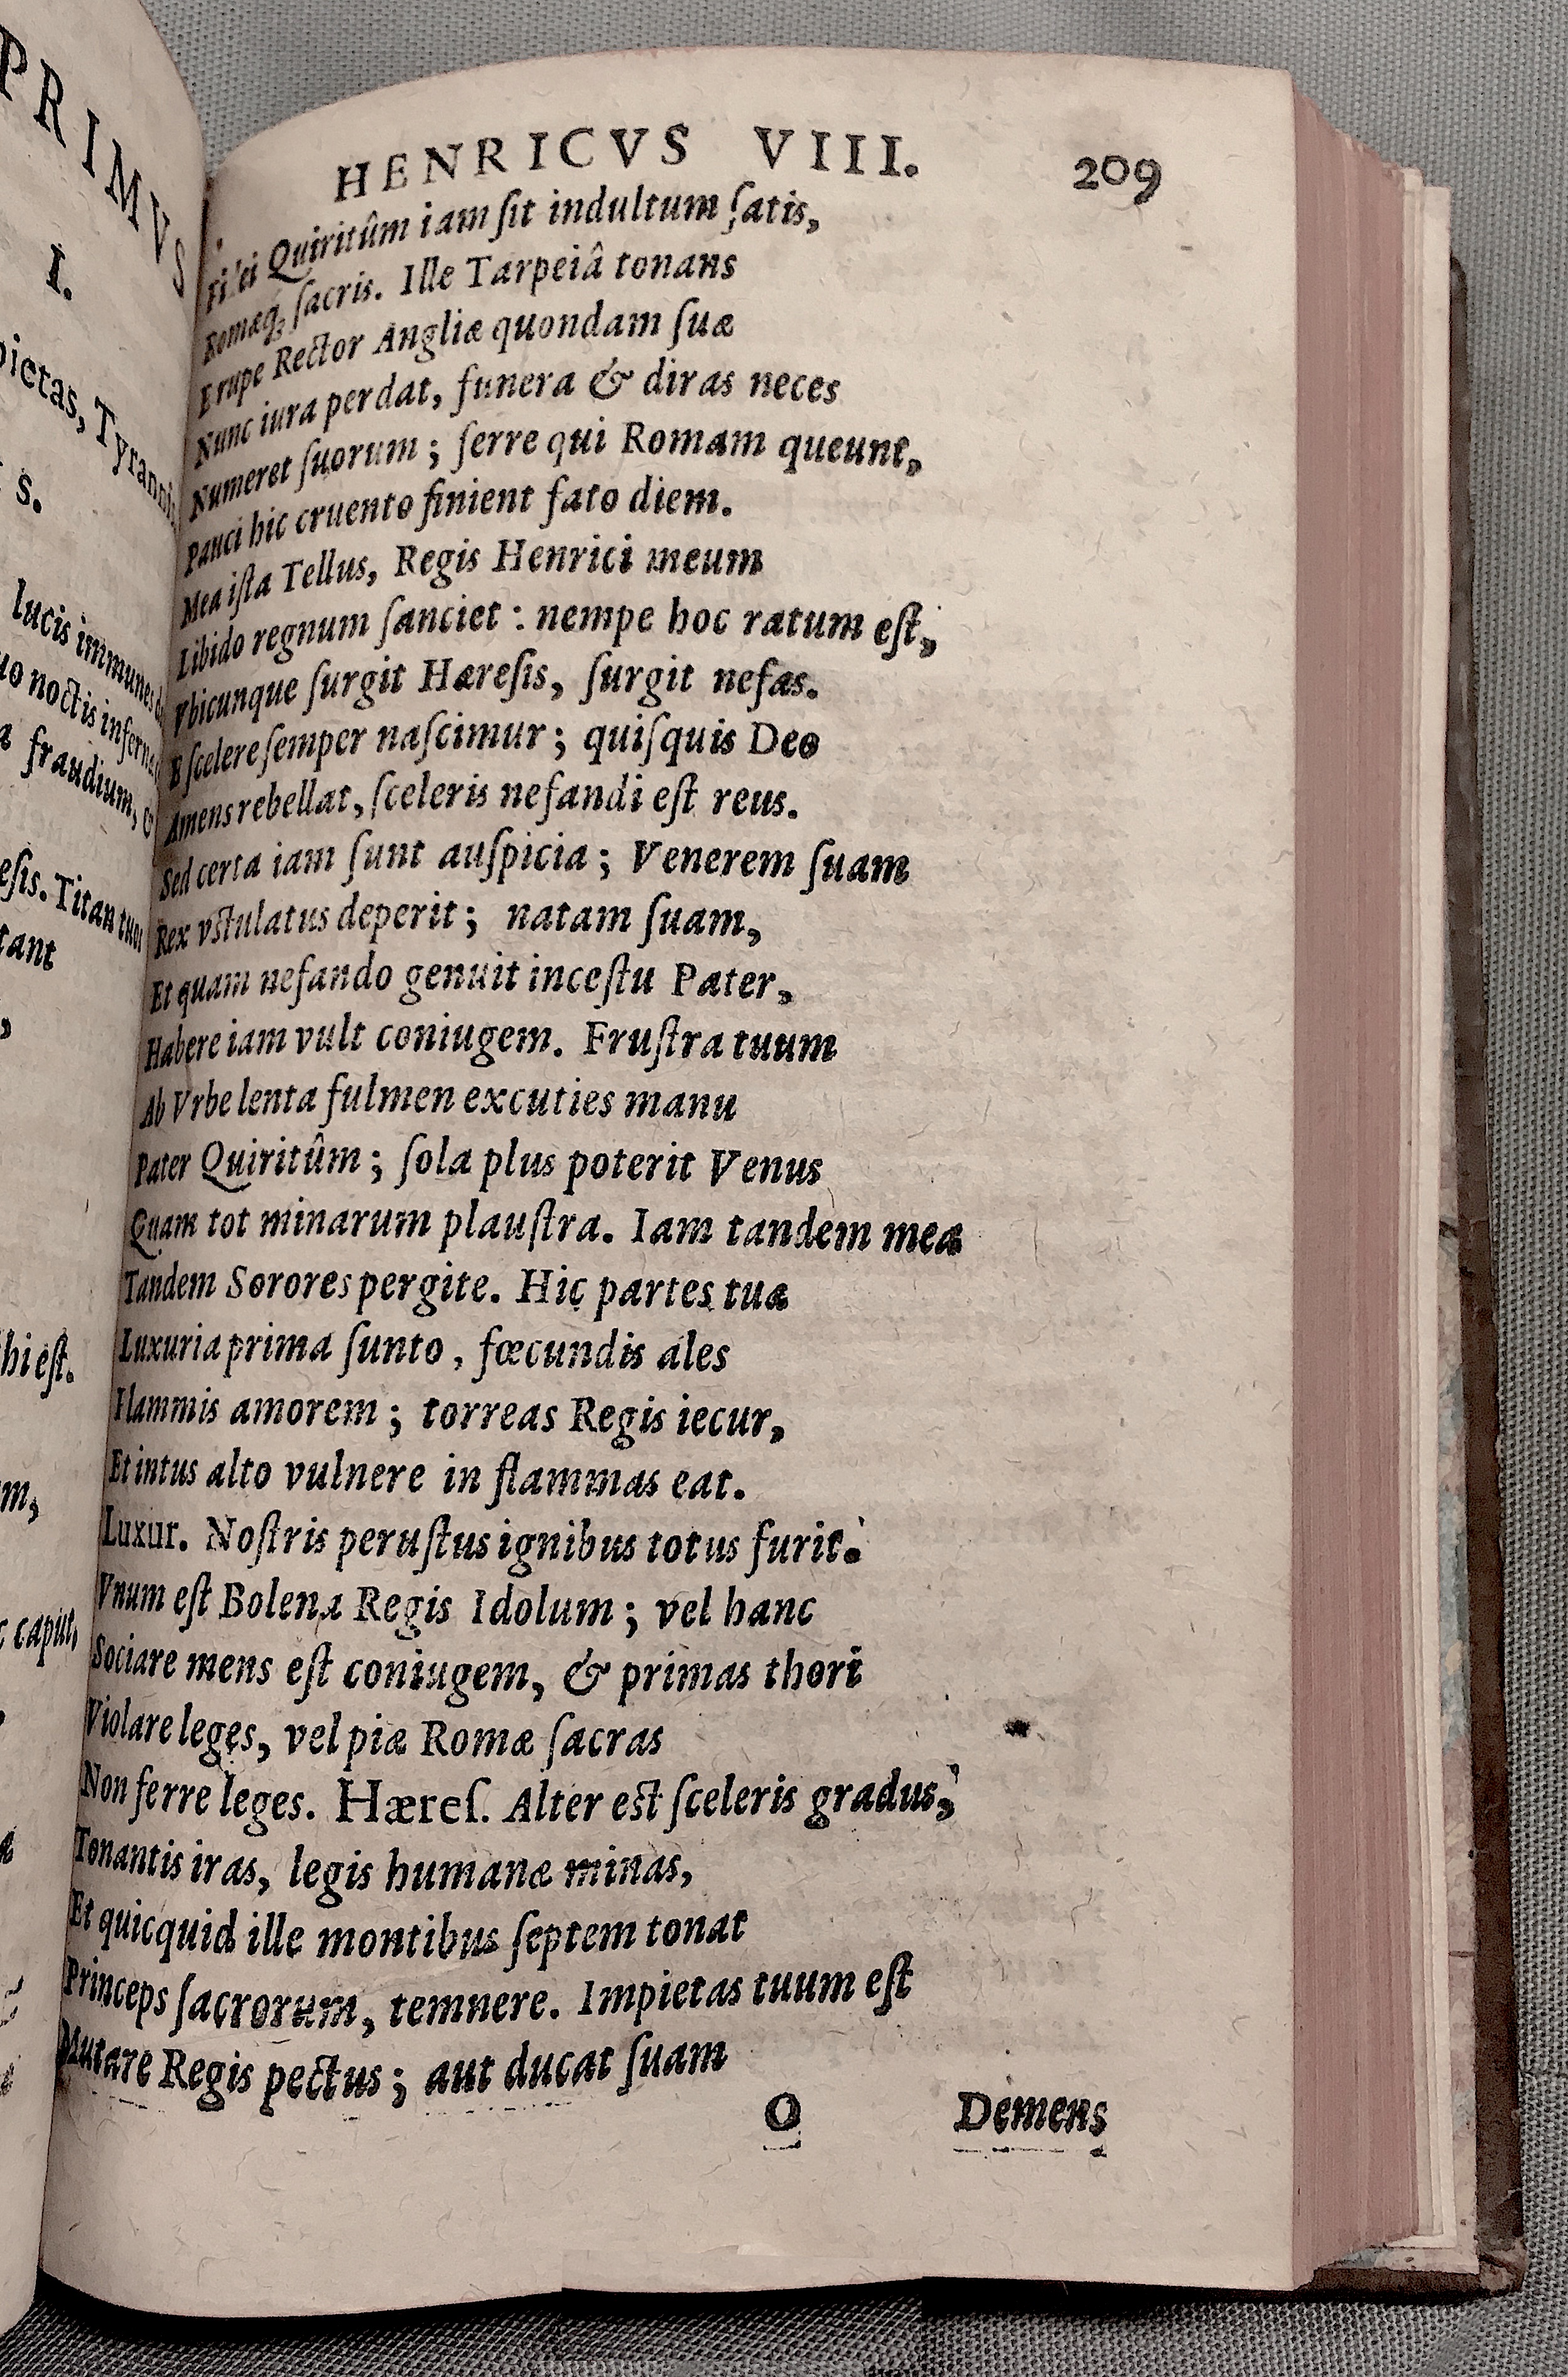 PRIMVS
I.
pietas, Tyrannis
s.
lucis immunes
uo noctis infernæ
fraudium, &
esis. Titan tuos
tant
hi est.
m,
caput,
HENRICVS VIII. 209
Fidei Quiritûm iam sit indultum satis,
Romæq; sacris. Ille Tarpeiâ tonans
E rupe Rector Angliæ quondam suæ
Nunc iura perdat, funera & diras neces
Numeret suorum; ferre qui Romam queunt,
Pauci hic cruento finient fato diem.
Mea ista Tellus, Regis Henrici meum
Libido regnum sanciet: nempe hoc ratum est,
Vbicunque surgit Hæresis, surgit nefas.
E scelere semper nascimur; quisquis Deo
Amens rebellat, sceleris nefandi est reus.
Sed certa iam sunt auspicia; Venerem suam
Rex vstulatus deperit; natam suam,
Et quam nefando genuit incestu Pater,
Habere iam vult coniugem. Frustra tuum
Ab Vrbe lenta fulmen excuties manu
Pater Quiritûm; sola plus poterit Venus
Quam tot minarum plaustra. Iam tandem meæ
Tandem Sorores pergite. Hic partes tuæ
Luxuria prima sunto, fœcundis ales
Flammis amorem; torreas Regis iecur,
Et intus alto vulnere in flammas eat.
Luxur. Nostris perustus ignibus totus furit.
Vnum est Bolena Regis Idolum; vel hanc
Sociare mens est coniugem, & primas thori
Violare leges, vel piæ Romæ sacras
Non ferre leges. Hæres. Alter est sceleris gradus,
Tonantis iras, legis humanæ minas,
Et quicquid ille montibus septem tonat
Princeps sacrorum, temnere. Impietas tuum est
Mutare Regis pectus; aut ducat suam
O Demens